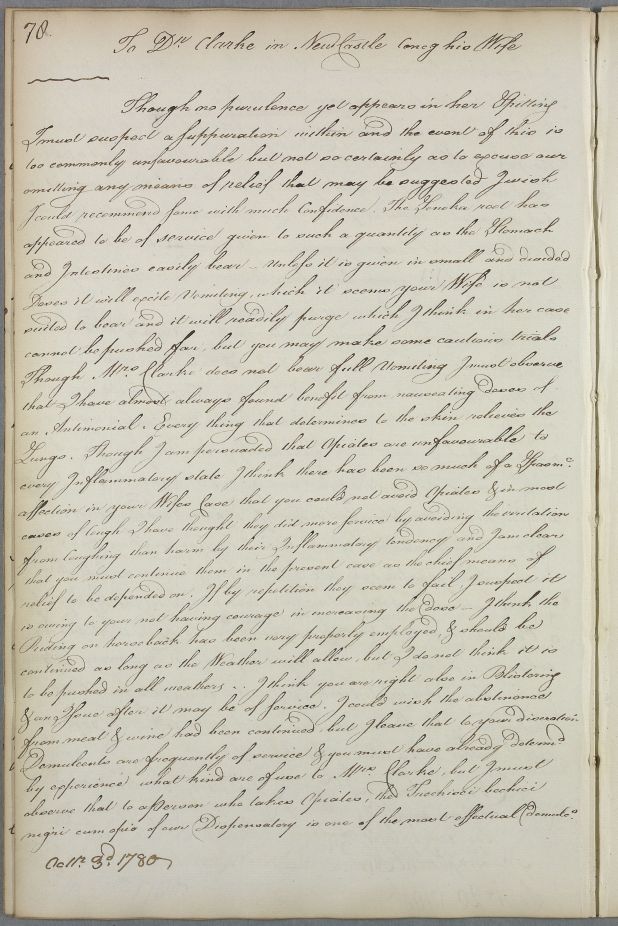 78.
To Dr. Clarke in NewCastle Concg his Wife
Though no purulence yet appears in her Spitting
I must suspect a Suppuration within and the event of this is
too commonly unfavourable but not so certainly as to excuse our
omitting any means of relief that may be suggested I wish
I could recommend some with much Confidence. The Seneka root has
appeared to be of service given to such a quantity as the Stomach
and Intestines easily bear - Unless it is given in small and divided
Doses it will excite Vomiting, which it seems your Wife is not
suited to bear and it will readily purge which I think in her case
cannot be pushed far, but you may make some cautious trials
Though Mrs. Clarke does not bear full Vomiting I must observe
that I have almost always found benefit from nauseating doses of
an Antimonial. Every thing that determines to the skin relieves the
Lungs. Though I am persuaded that Opiates are unfavourable to
every Inflammatory state I think there has been so much of a Spasmc.
affection in your Wifes Case that you could not avoid Opiates & in most
cases of Cough I have thought they did more service by avoiding the irritation
from Coughing than harm by their Inflammatory tendency and I am clear
that you must continue them in the present case as the chief means of
relief to be depended on. If by repetition they seem to fail, I suspect it
is owing to your not having courage in increasing the Dose - I think the
Riding on horseback has been very properly employed, & should be
continued as long as the Weather will allow, but I do not think it is
to be pushed in all weathers. I think you are right also in Blistering
& any Issue after it may be of service. I could wish the abstinence
from meat & wine had been continued but I leave that to your discretion
Demulcents are frequently of service & you must have already determd.
by experience what kind are of use to Mrs. Clarke, but I must
observe that to a Person who takes Opiates, the Trochisci bechici
nigri cum opio of our Dispensatory is one of the most effectual Demulcts.
Octr. 3d. 1780